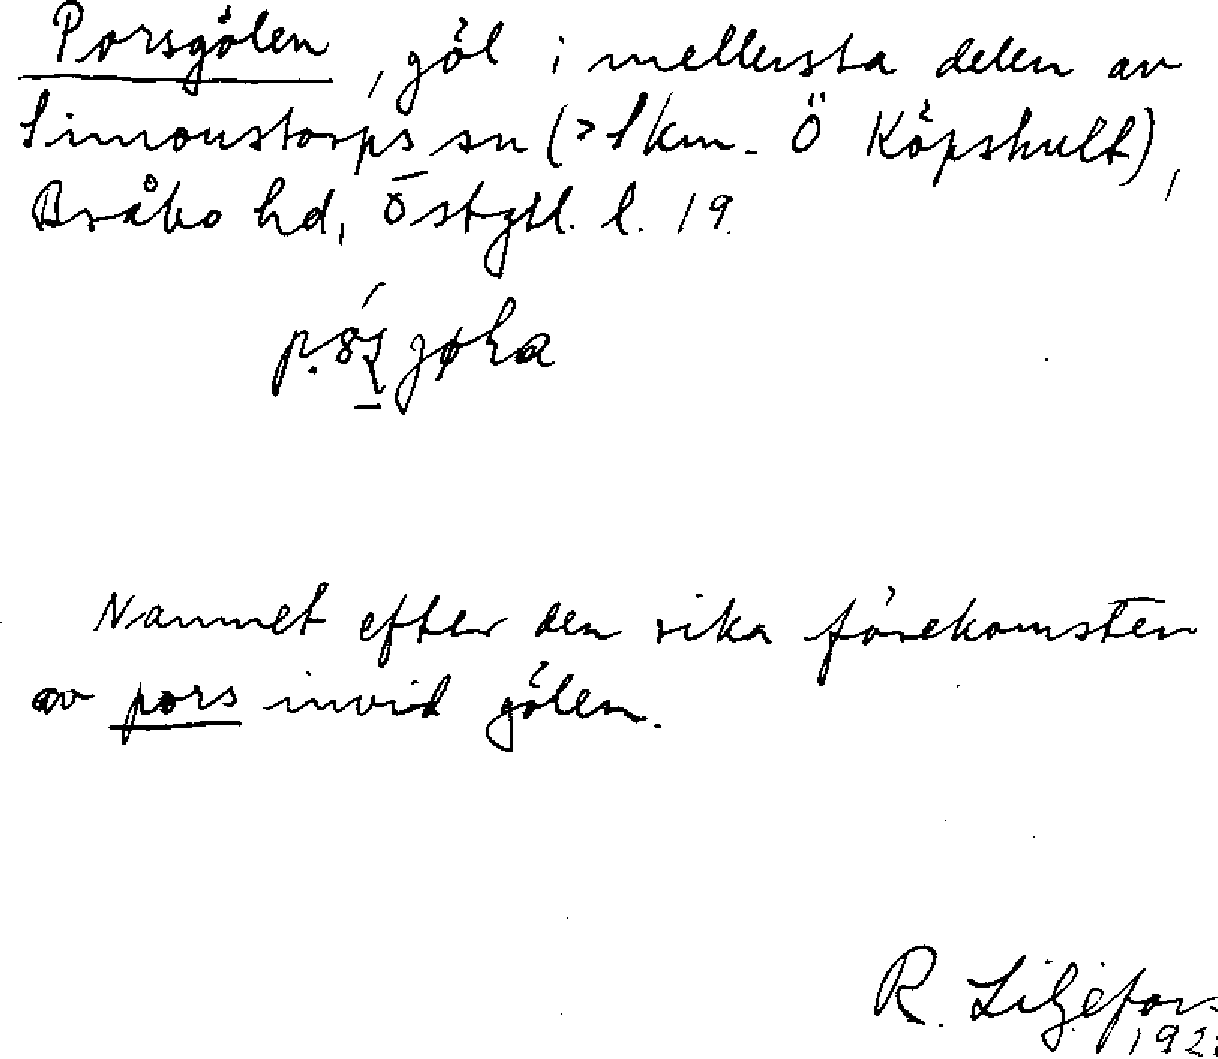 Porsgölen, göl i mellersta delen av
Simonstorps sn (>1 km. Ö Köpshult),
Bråbo hd, Östgtl. l. 19.
Namnet efter den rika förekomsten
av pors invid gölen.
R. Liljefor
192